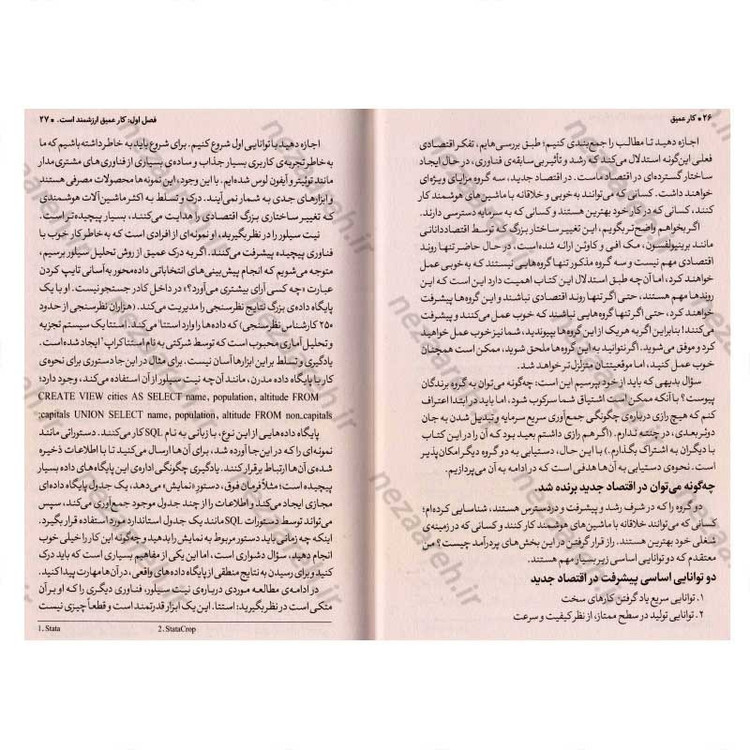 ۲۶ • کار عمیق
اجازه دهید تا مطالب را جمع‌بندی کنیم؛ طبق بررسی‌هایم، تفکر اقتصادی
فعلی این‌گونه استدلال می‌کند که رشد و تأثیر بی‌سابقه‌ی فناوری، در حال ایجاد
ساختار گسترده‌ای در اقتصاد ماست. در اقتصاد جدید، سه گروه مزایای ویژه‌ای
خواهند داشت. کسانی که می‌توانند به‌خوبی و خلاقانه با ماشین‌های هوشمند کار
کنند، کسانی که در کار خود بهترین هستند و کسانی که به سرمایه دسترسی دارند.
اگر بخواهم واضح‌تر بگویم، این تغییر ساختار بزرگ که توسط اقتصاددانانی
مانند برینولفسون، مک افی و کاوئن ارائه شده‌است، در حال حاضر تنها روند
اقتصادی مهم نیست و سه گروه مذکور تنها گروه‌هایی نیستند که به‌خوبی عمل
خواهند کرد، اما آن‌چه طبق استدلال این کتاب اهمیت دارد این است که این
روندها مهم هستند، حتی اگر تنها روند اقتصادی نباشند و این گروه‌ها پیشرفت
خواهند کرد، حتی اگر تنها گروه‌هایی نباشند که خوب عمل می‌کنند و پیشرفت
می‌کنند؛ بنابراین اگر به هر یک از این گروه‌ها بپیوندید، شما نیز خوب عمل خواهید
کرد و موفق می‌شوید. اگر نتوانید به این گروه‌ها ملحق شوید، ممکن است همچنان
خوب عمل کنید، اما موقعیتتان متزلزل‌تر خواهد شد.
سؤال بدیهی که باید از خود بپرسیم این است: چه‌گونه می‌توان به گروه برندگان
پیوست؟ با آنکه ممکن است اشتیاق شما سرکوب شود، اما باید در ابتدا اعتراف
کنم که هیچ رازی درباره‌ی چگونگی جمع‌آوری سریع سرمایه و تبدیل شدن به جان
دوئر بعدی، در چنته ندارم. (اگر هم رازی داشتم بعید بود که آن را در این کتاب
با دیگران به اشتراک بگذارم.) با این حال، دستیابی به دو گروه دیگر امکان‌پذیر
است. نحوه‌ی دستیابی به آن‌ها هدفی است که در ادامه به آن می‌پردازیم.
چه‌گونه می‌توان در اقتصاد جدید برنده شد.
دو گروه را که در شرف رشد و پیشرفت و در دسترس هستند، شناسایی کرده‌ام؛
کسانی که می‌توانند خلاقانه با ماشین‌های هوشمند کار کنند و کسانی که در زمینه‌ی
شغلی خود بهترین هستند. راز قرار گرفتن در این بخش‌های پردرآمد چیست؟ من
معتقدم که دو توانایی اساسی زیر بسیار مهم هستند.
دو توانایی اساسی پیشرفت در اقتصاد جدید
۱. توانایی سریع یاد گرفتن کارهای سخت
۲. توانایی تولید در سطح ممتاز، از نظر کیفیت و سرعت
فصل اول: کار عمیق ارزشمند است. • ۲۷
اجازه دهید با توانایی اول شروع کنیم. برای شروع باید به خاطر داشته باشیم که ما
به خاطر تجربه‌ی کاربری بسیار جذاب و ساده‌ی بسیاری از فناوری‌های مشتری‌مدار
مانند توئیتر و آیفون لوس شده‌ایم. با این وجود، این نمونه‌ها محصولات مصرفی هستند
و ابزارهای جدی به شمار نمی‌آیند. درک و تسلط به اکثر ماشین‌آلات هوشمندی
که تغییر ساختاری بزرگ اقتصادی را هدایت می‌کنند، بسیار پیچیده‌تر است.
نیت سیلور را در نظر بگیرید، او نمونه‌ای از افرادی است که به خاطر کار خوب با
فناوری پیچیده پیشرفت می‌کنند. اگر به درک عمیق از روش تحلیل سیلور برسیم،
متوجه می‌شویم که انجام پیش‌بینی‌های انتخاباتی داده‌محور به‌آسانی تایپ کردن
عبارت «چه کسی آرای بیشتری می‌آورد؟» در داخل کادر جستجو نیست. او با یک
پایگاه داده‌ی بزرگ نتایج نظرسنجی را مدیریت می‌کند. (هزاران نظرسنجی از حدود
۲۵۰ کارشناس نظرسنجی) که داده‌ها را وارد استتا¹ می‌کند. استتا یک سیستم تجزیه
و تحلیل آماری محبوب است که توسط شرکتی به نام استتاکراپ² ایجاد شده‌است.
یادگیری و تسلط بر این ابزارها آسان نیست. برای مثال در این‌جا دستوری برای نحوه‌ی
کار با پایگاه داده مدرن، مانند آن‌چه نیت سیلور از آن استفاده می‌کند، وجود دارد؛
CREATE VIEW cities AS SELECT name, population, altitude FROM
;capitals UNION SELECT name, population, altitude FROM non_capitals
پایگاه داده‌هایی از این نوع، با زبانی به نام SQL کار می‌کنند. دستوراتی مانند
نمونه‌ای را که در این‌جا آورده شد، برای آن‌ها ارسال می‌کنید تا با اطلاعات ذخیره
شده‌ی آن‌ها ارتباط برقرار کنند. یادگیری چگونگی اداره‌ی این پایگاه‌های داده بسیار
پیچیده است؛ مثلاً فرمان فوق، دستور «نمایش» می‌دهد، یک جدول پایگاه داده‌ای
مجازی ایجاد می‌کند و اطلاعات را از چند جدول موجود جمع‌آوری می‌کند، سپس
می‌تواند توسط دستورات SQL مانند یک جدول استاندارد مورد استفاده قرار بگیرد.
اینکه چه زمانی باید دستور مربوط به نمایش را بدهید و چگونه این کار را خیلی خوب
انجام دهید، سؤال دشواری است، اما این یکی از مفاهیم بسیاری است که باید درک
کنید و برای رسیدن به نتایج منطقی از پایگاه داده‌های واقعی، در آن‌ها مهارت پیدا کنید.
در ادامه‌ی مطالعه موردی درباره‌ی نیت سیلور، فناوری دیگری را که او بر آن
متکی است در نظر بگیرید: استتا. این یک ابزار قدرتمند است و قطعاً چیزی نیست
1. Stata 2. StataCrop
nezaareh.ir